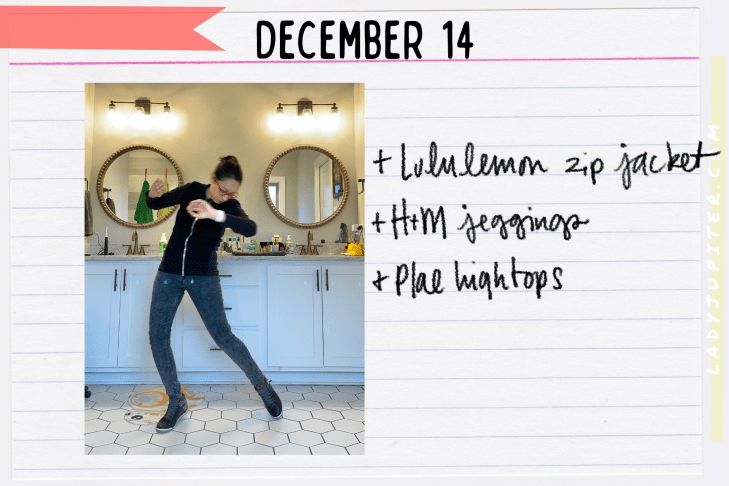 DECEMBER 14
+ Lululemon zip jacket
+ H+M jeggings
+ Plae hightops
LADYJUPITER.COM